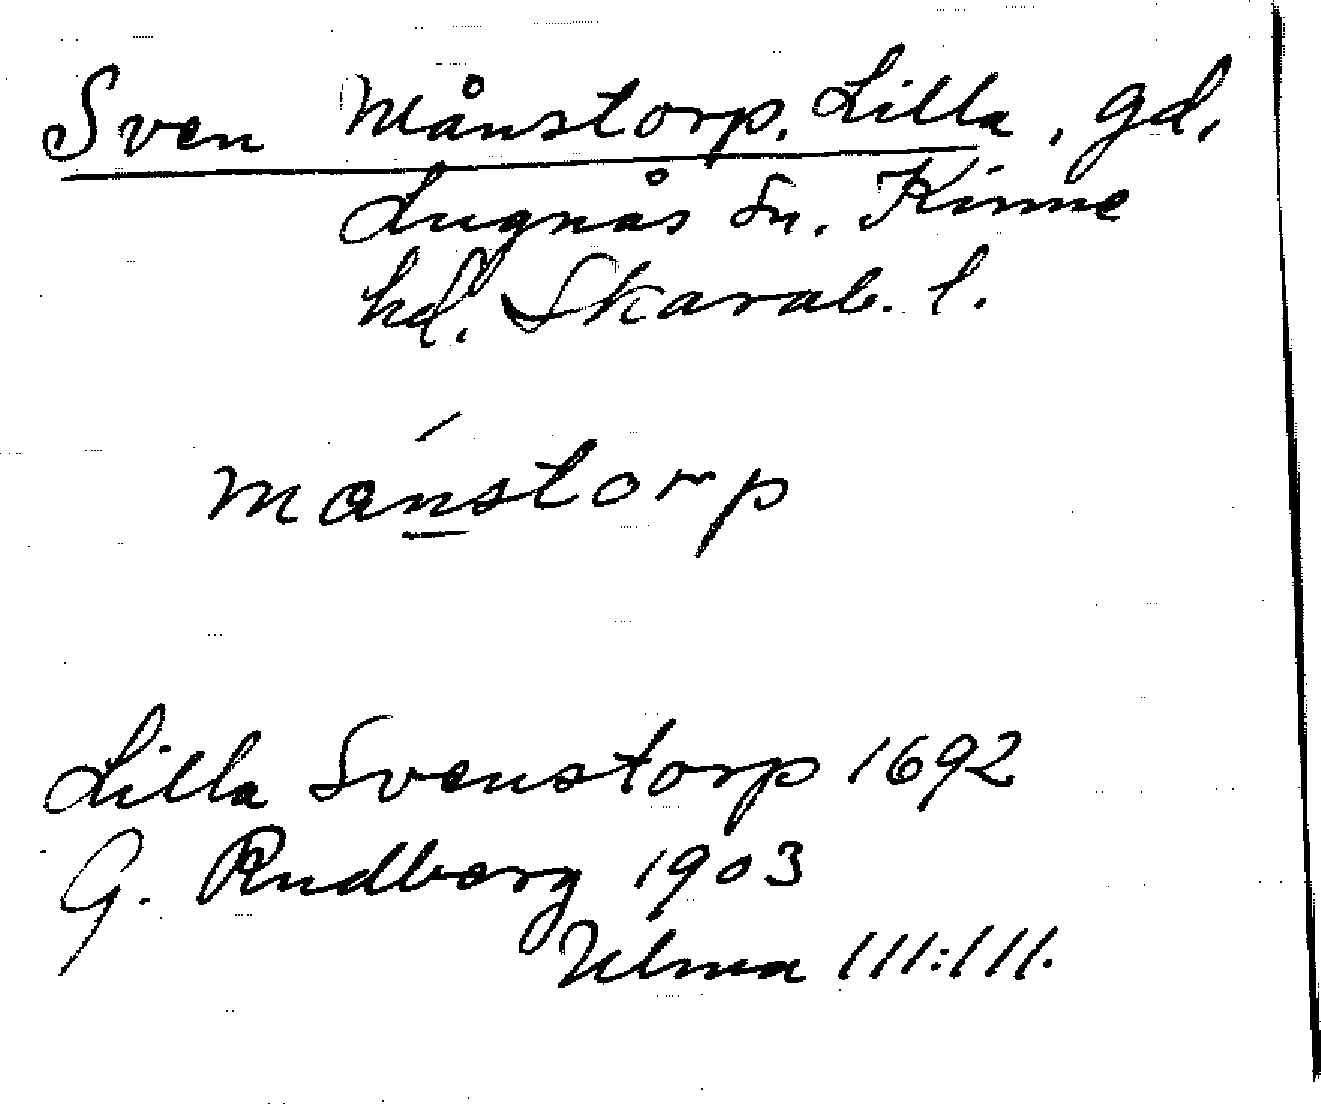 Sven Månstorp, Lilla, gd.
Lugnås sn. Kinne
hd. Skarab. l.
mánstorp
Lilla Svenstorp 1692
G. Rudberg 1903
Ulma 111:111.